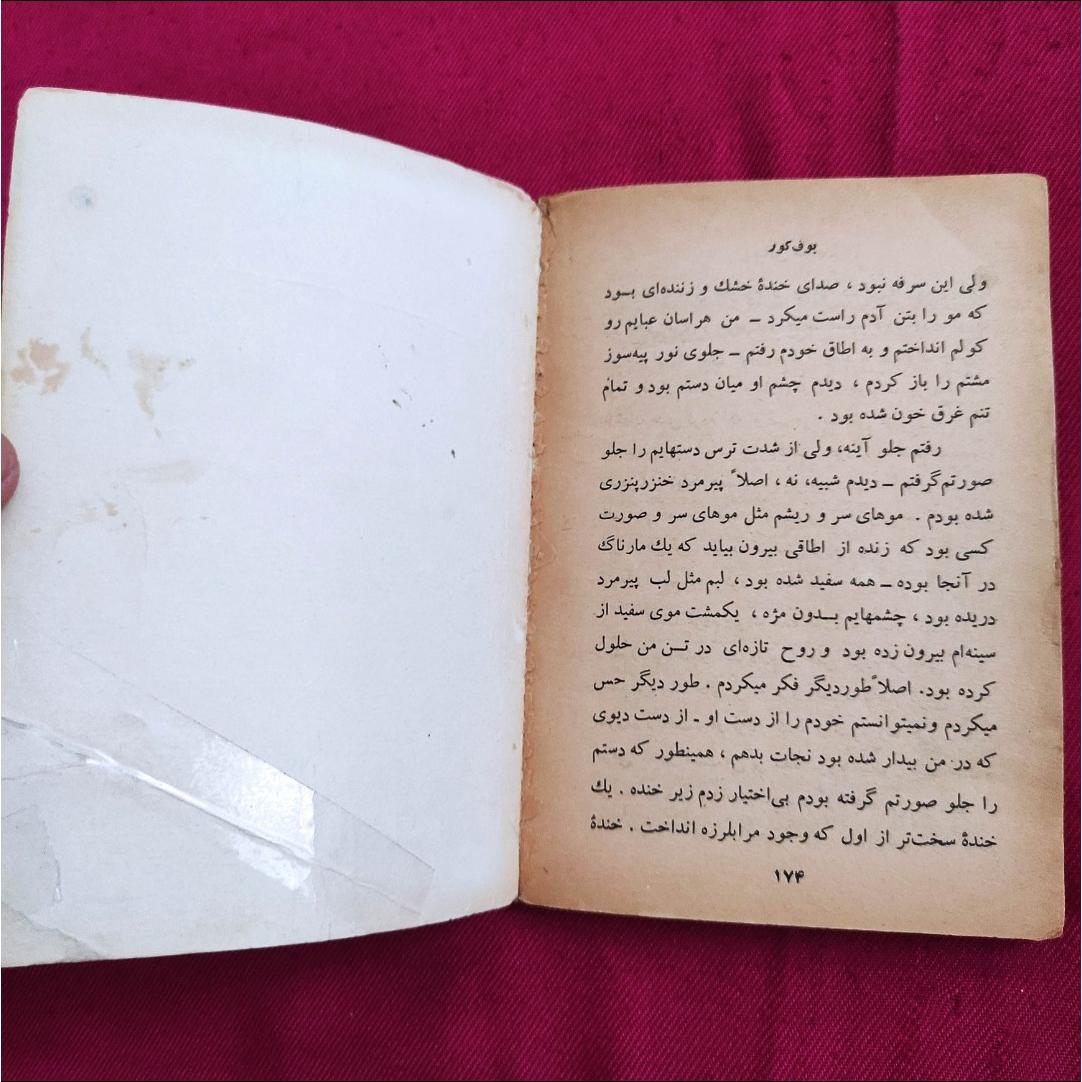 بوف کور
ولی این سرفه نبود ، صدای خندهٔ خشك و زننده‌ای بــود
که مو را بتن آدم راست میکرد ــ من هراسان عبایم رو
کولم انداختم و به اطاق خودم رفتم ــ جلوی نور پیه‌سوز
مشتم را باز کردم ، دیدم چشم او میان دستم بود و تمام
تنم غرق خون شده بود .
رفتم جلو آینه، ولی از شدت ترس دستهایم را جلو
صورتم گرفتم ــ دیدم شبیه، نه ، اصلاً پیرمرد خنزرپنزری
شده بودم . موهای سر و ریشم مثل موهای سر و صورت
کسی بود که زنده از اطاقی بیرون بیاید که یك مارناگ
در آنجا بوده ــ همه سفید شده بود ، لبم مثل لب پیرمرد
دریده بود ، چشمهایم بــدون مژه ، یکمشت موی سفید از
سینه‌ام بیرون زده بود و روح تازه‌ای در تــن من حلول
کرده بود. اصلاً طوردیگر فکر میکردم . طور دیگر حس
میکردم ونمیتوانستم خودم را از دست او ـ از دست دیوی
که در من بیدار شده بود نجات بدهم ، همینطور که دستم
را جلو صورتم گرفته بودم بی‌اختیار زدم زیر خنده . یك
خندهٔ سخت‌تر از اول که وجود مرا بلرزه انداخت . خندهٔ
۱۷۴